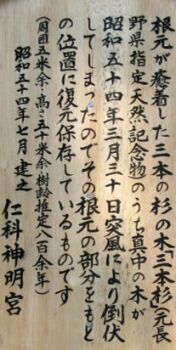 根元が癒着した三本の杉の木「三本杉」(元長
野県指定天然記念物)のうち真中の木が
昭和五十四年三月三十日突風により倒伏
してしまったのでその根元の部分をもと
の位置に復元保存しているものです
(周囲五米余・高さ五十米余・樹齢推定八百余年)
昭和五十四年七月 建之
仁科神明宮